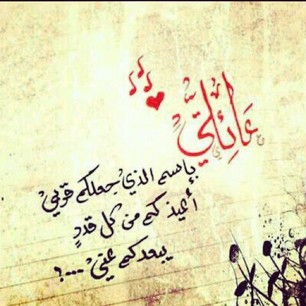 عَائِلتيِّ
بإسم الذيْ جعلكم قوتيْ
أعيذكم من كل قدرٍ
يبعدكم عنيْ ...؟